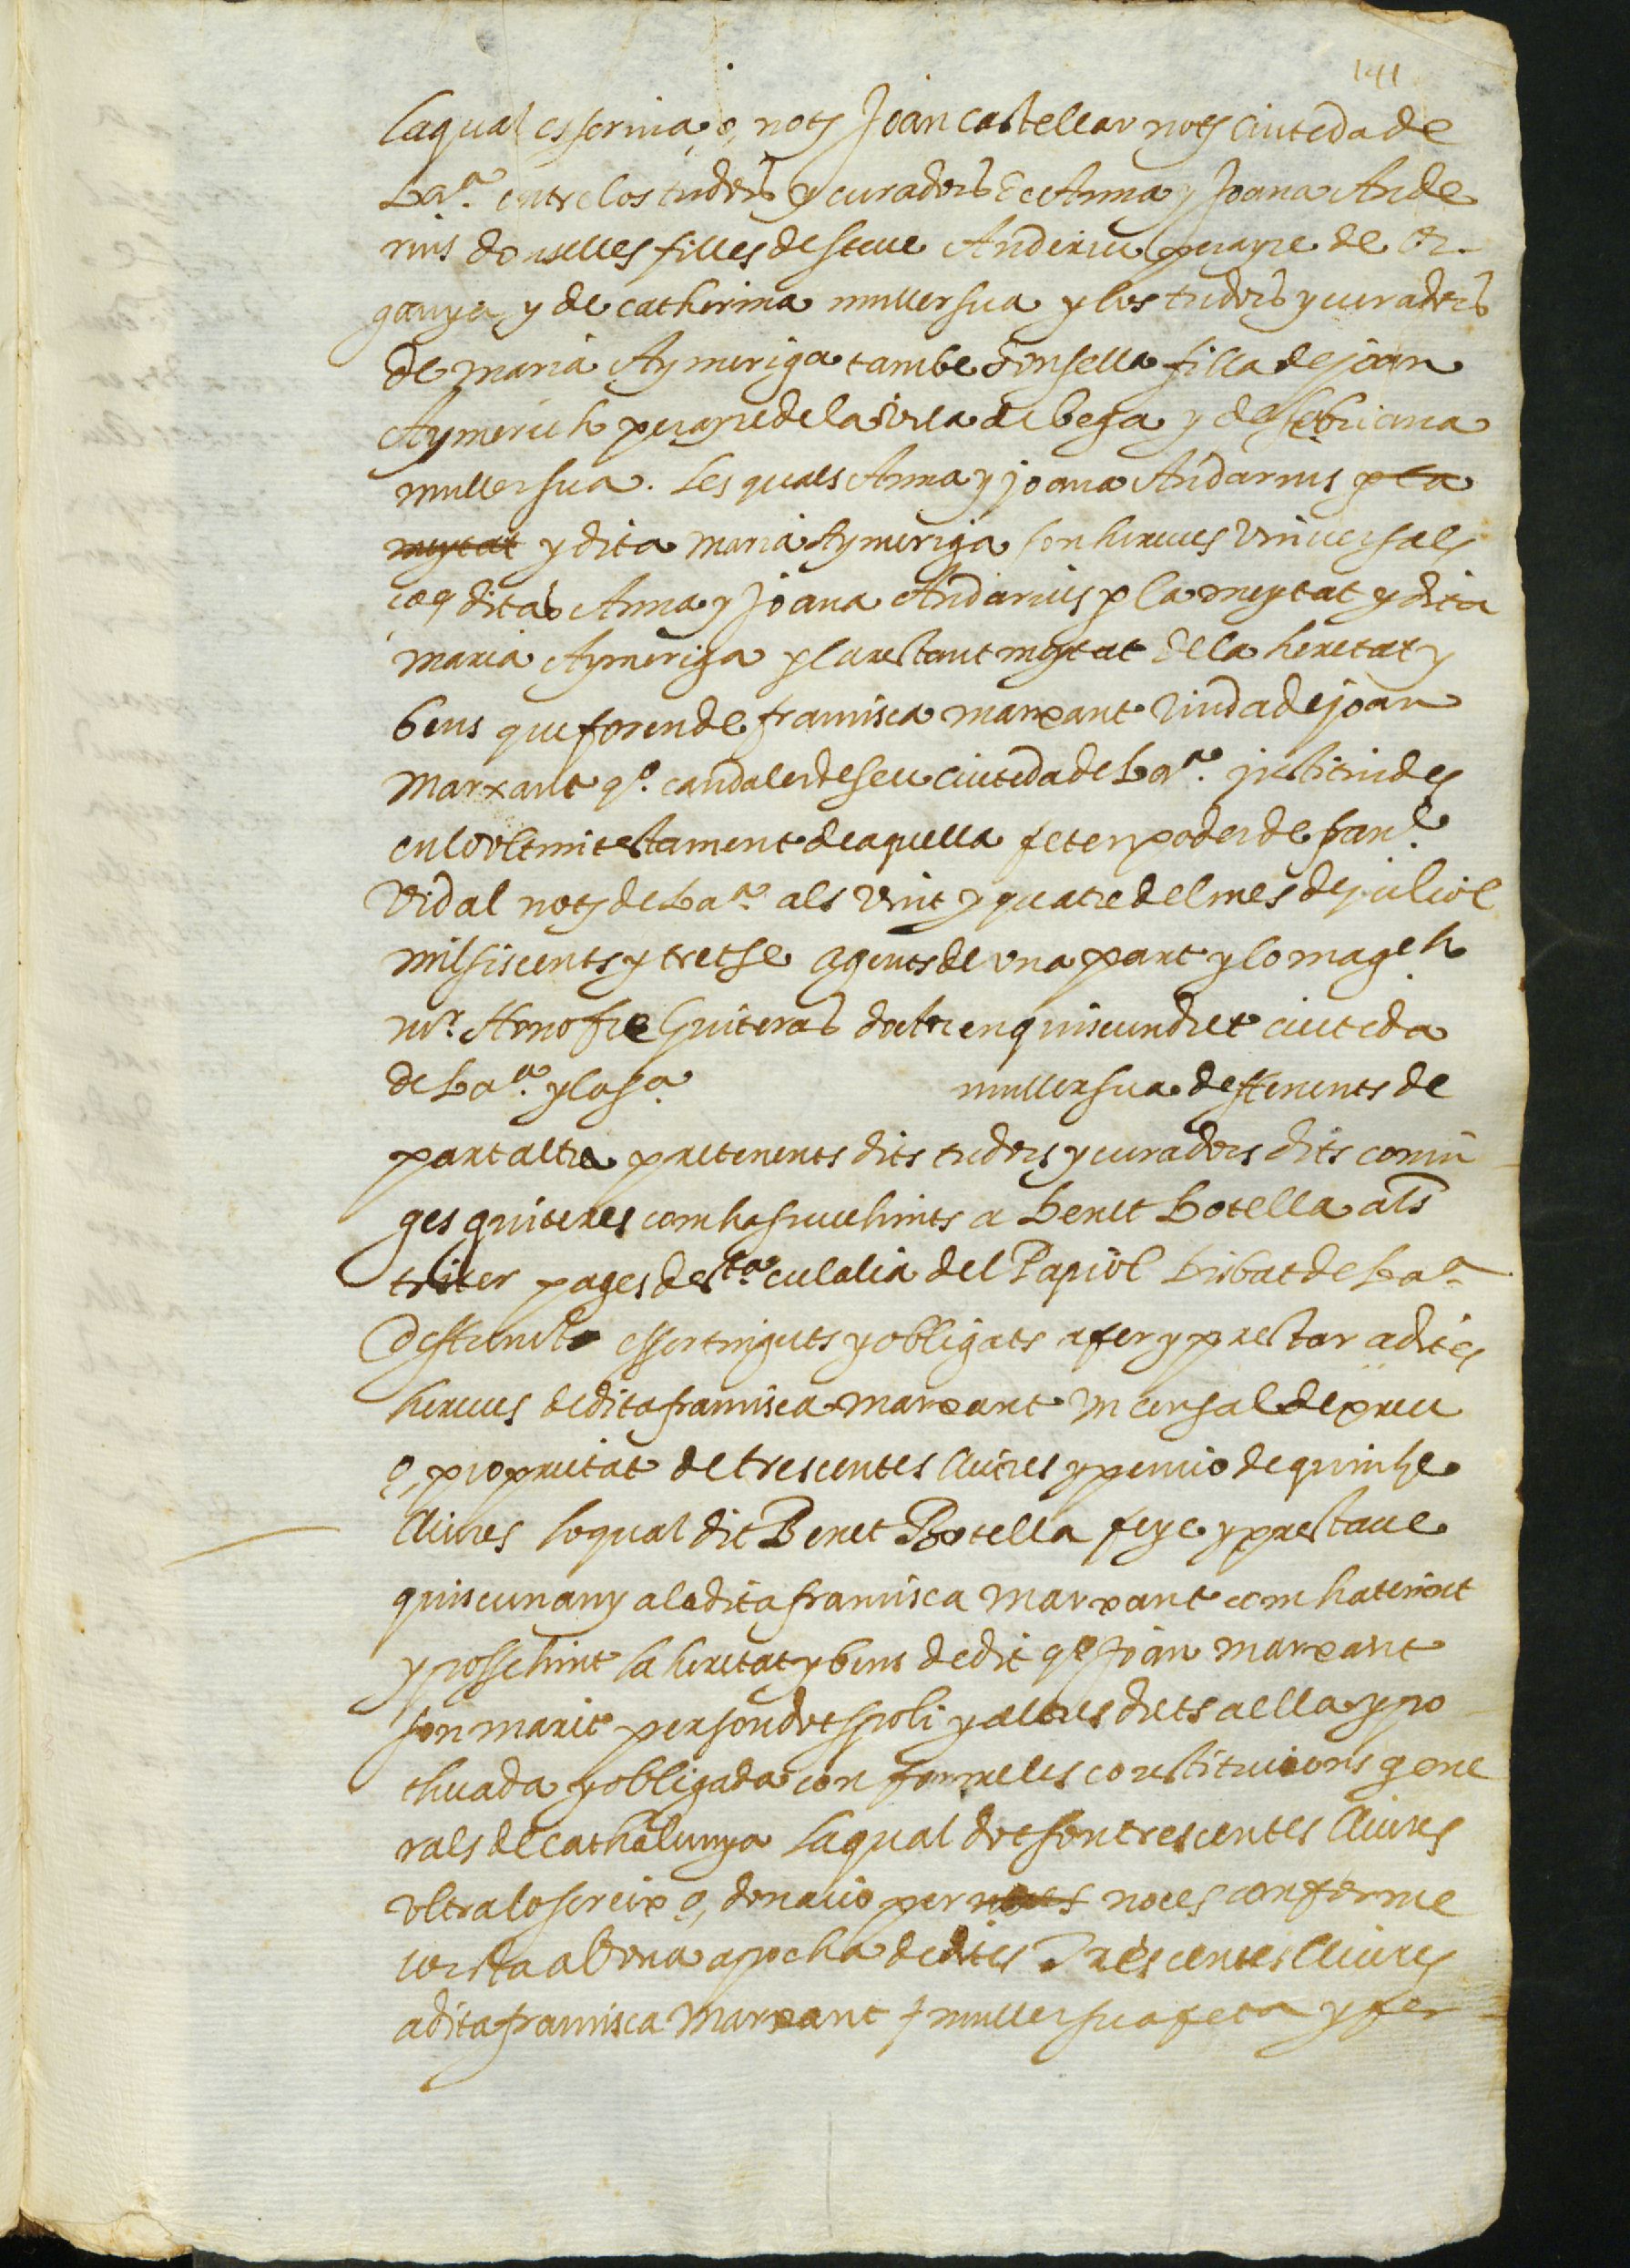 141
la qual es scrivia, o, not. Joan Castellar not. Ciuteda de
Bar.ª entre los tudors y curadors de Anna y Joana Ande
rius donselles filles de steue Anderiu perayre de Or-
ganya y de catherina muller sua y los tudors y curadors
de maria Aymeriga tambe donsella filla de joan
Aymerich perayre de la vila de bega y de
muller sua. Les quals Anna y joana Andarius p la
meytat y dita Maria Aymeriga son hereves universals
ço q dita Anna y Joana Andarius p la meytat y dita
maria Aymeriga p la restant meytat de la heretat y
bens que foren de francisca marxant viuda de joan
Marxant q.º candaler de seu ciuteda de Bar.ª instituides
en lo ultim testament de aquella fet en poder de fran.ch
Vidal not. de Bar.ª als vint y quatre del mes de juliol
mil siscents y tretse agents de una part y lo mag.ch
m.r Honofre Guiteras doctor en quiscun dret ciuteda
de Bar.ª y la s.ª muller sua deffenents de
part altra pretenents dits tudors y curadors dits conju
ges guiteres com ha succehints a Benet Botella als
triter pages de s.ta eulalia del Papiol bisbat de Bar.ª
deffunct esser tinguts y obligats a fer y prestar a dites
hereves de dita francisca marxant un censal de preu
o, proprietat de trescentes lliures y pencio de quinse
lliures lo qual dit Benet Botella feye y prestaue
quiscun any a la dita francisca Marxant com ha tenint
y possehint la heretat y bens de dit q.º Joan marxant
son marit per son dot spoli y altres drets a ella ypo
thecada y obligada conforme les constitucions gene
rals de cathalunya la qual dot son trescentes lliures
ultra lo screix o, donacio per noces noces conforme
consta ab una apocha de dites Trescentes lliures
a dita francisca Marxant muller sua feta y fer